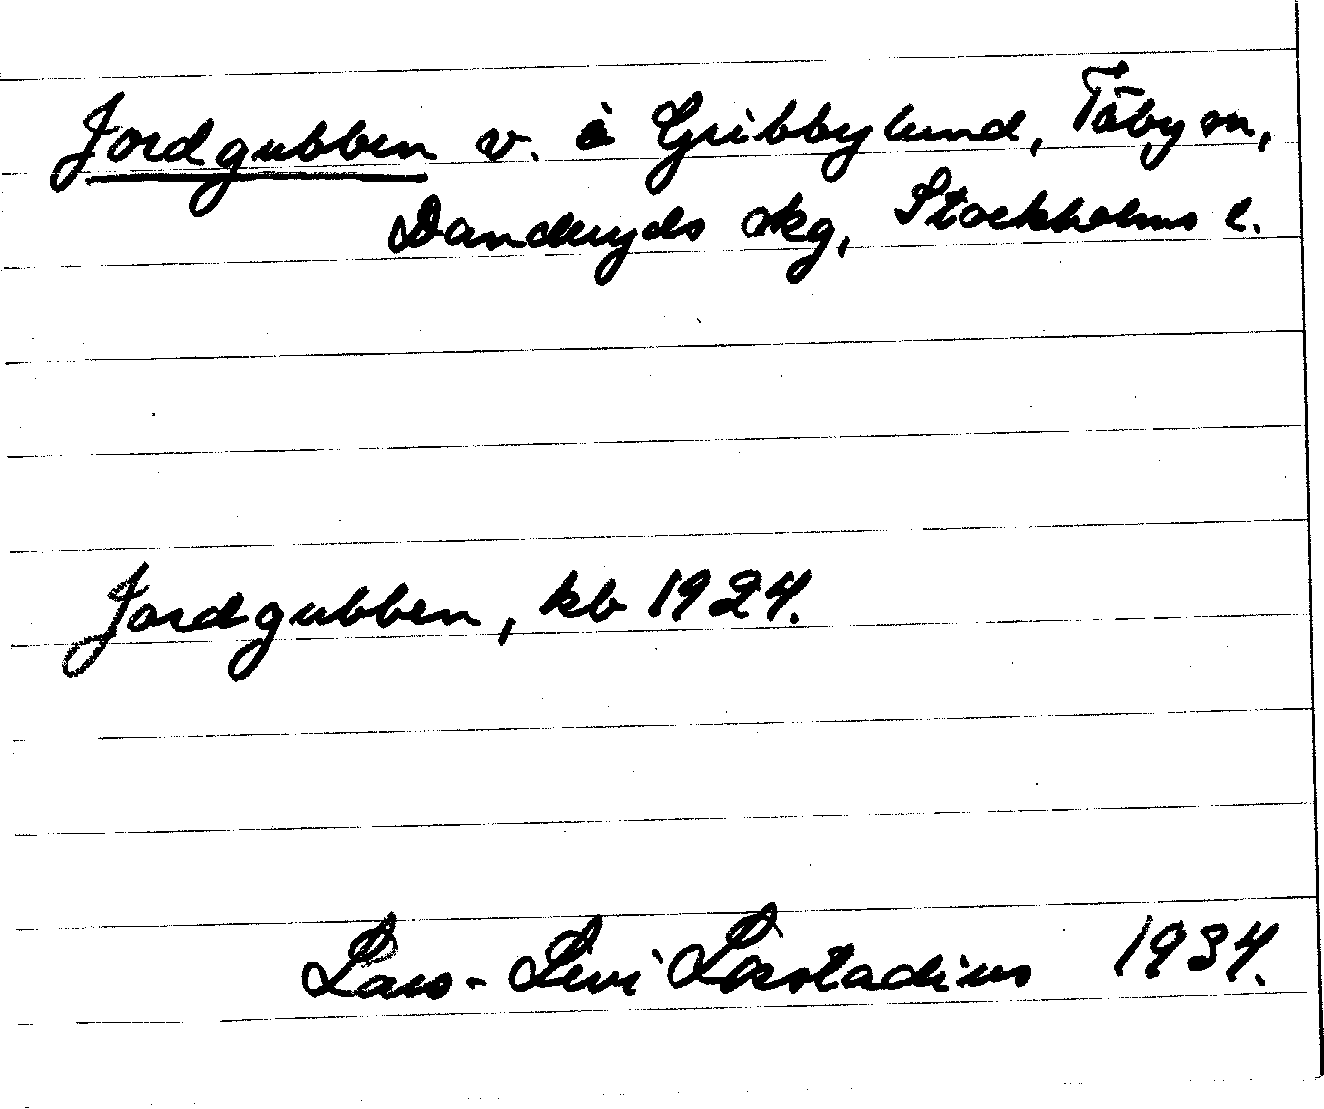 Jordgubben v. å Gribbylund, Täby sn,
Danderyds skg, Stockholms l.
Jordgubben, kb 1924.
Lars-Levi Læstadius 1934.